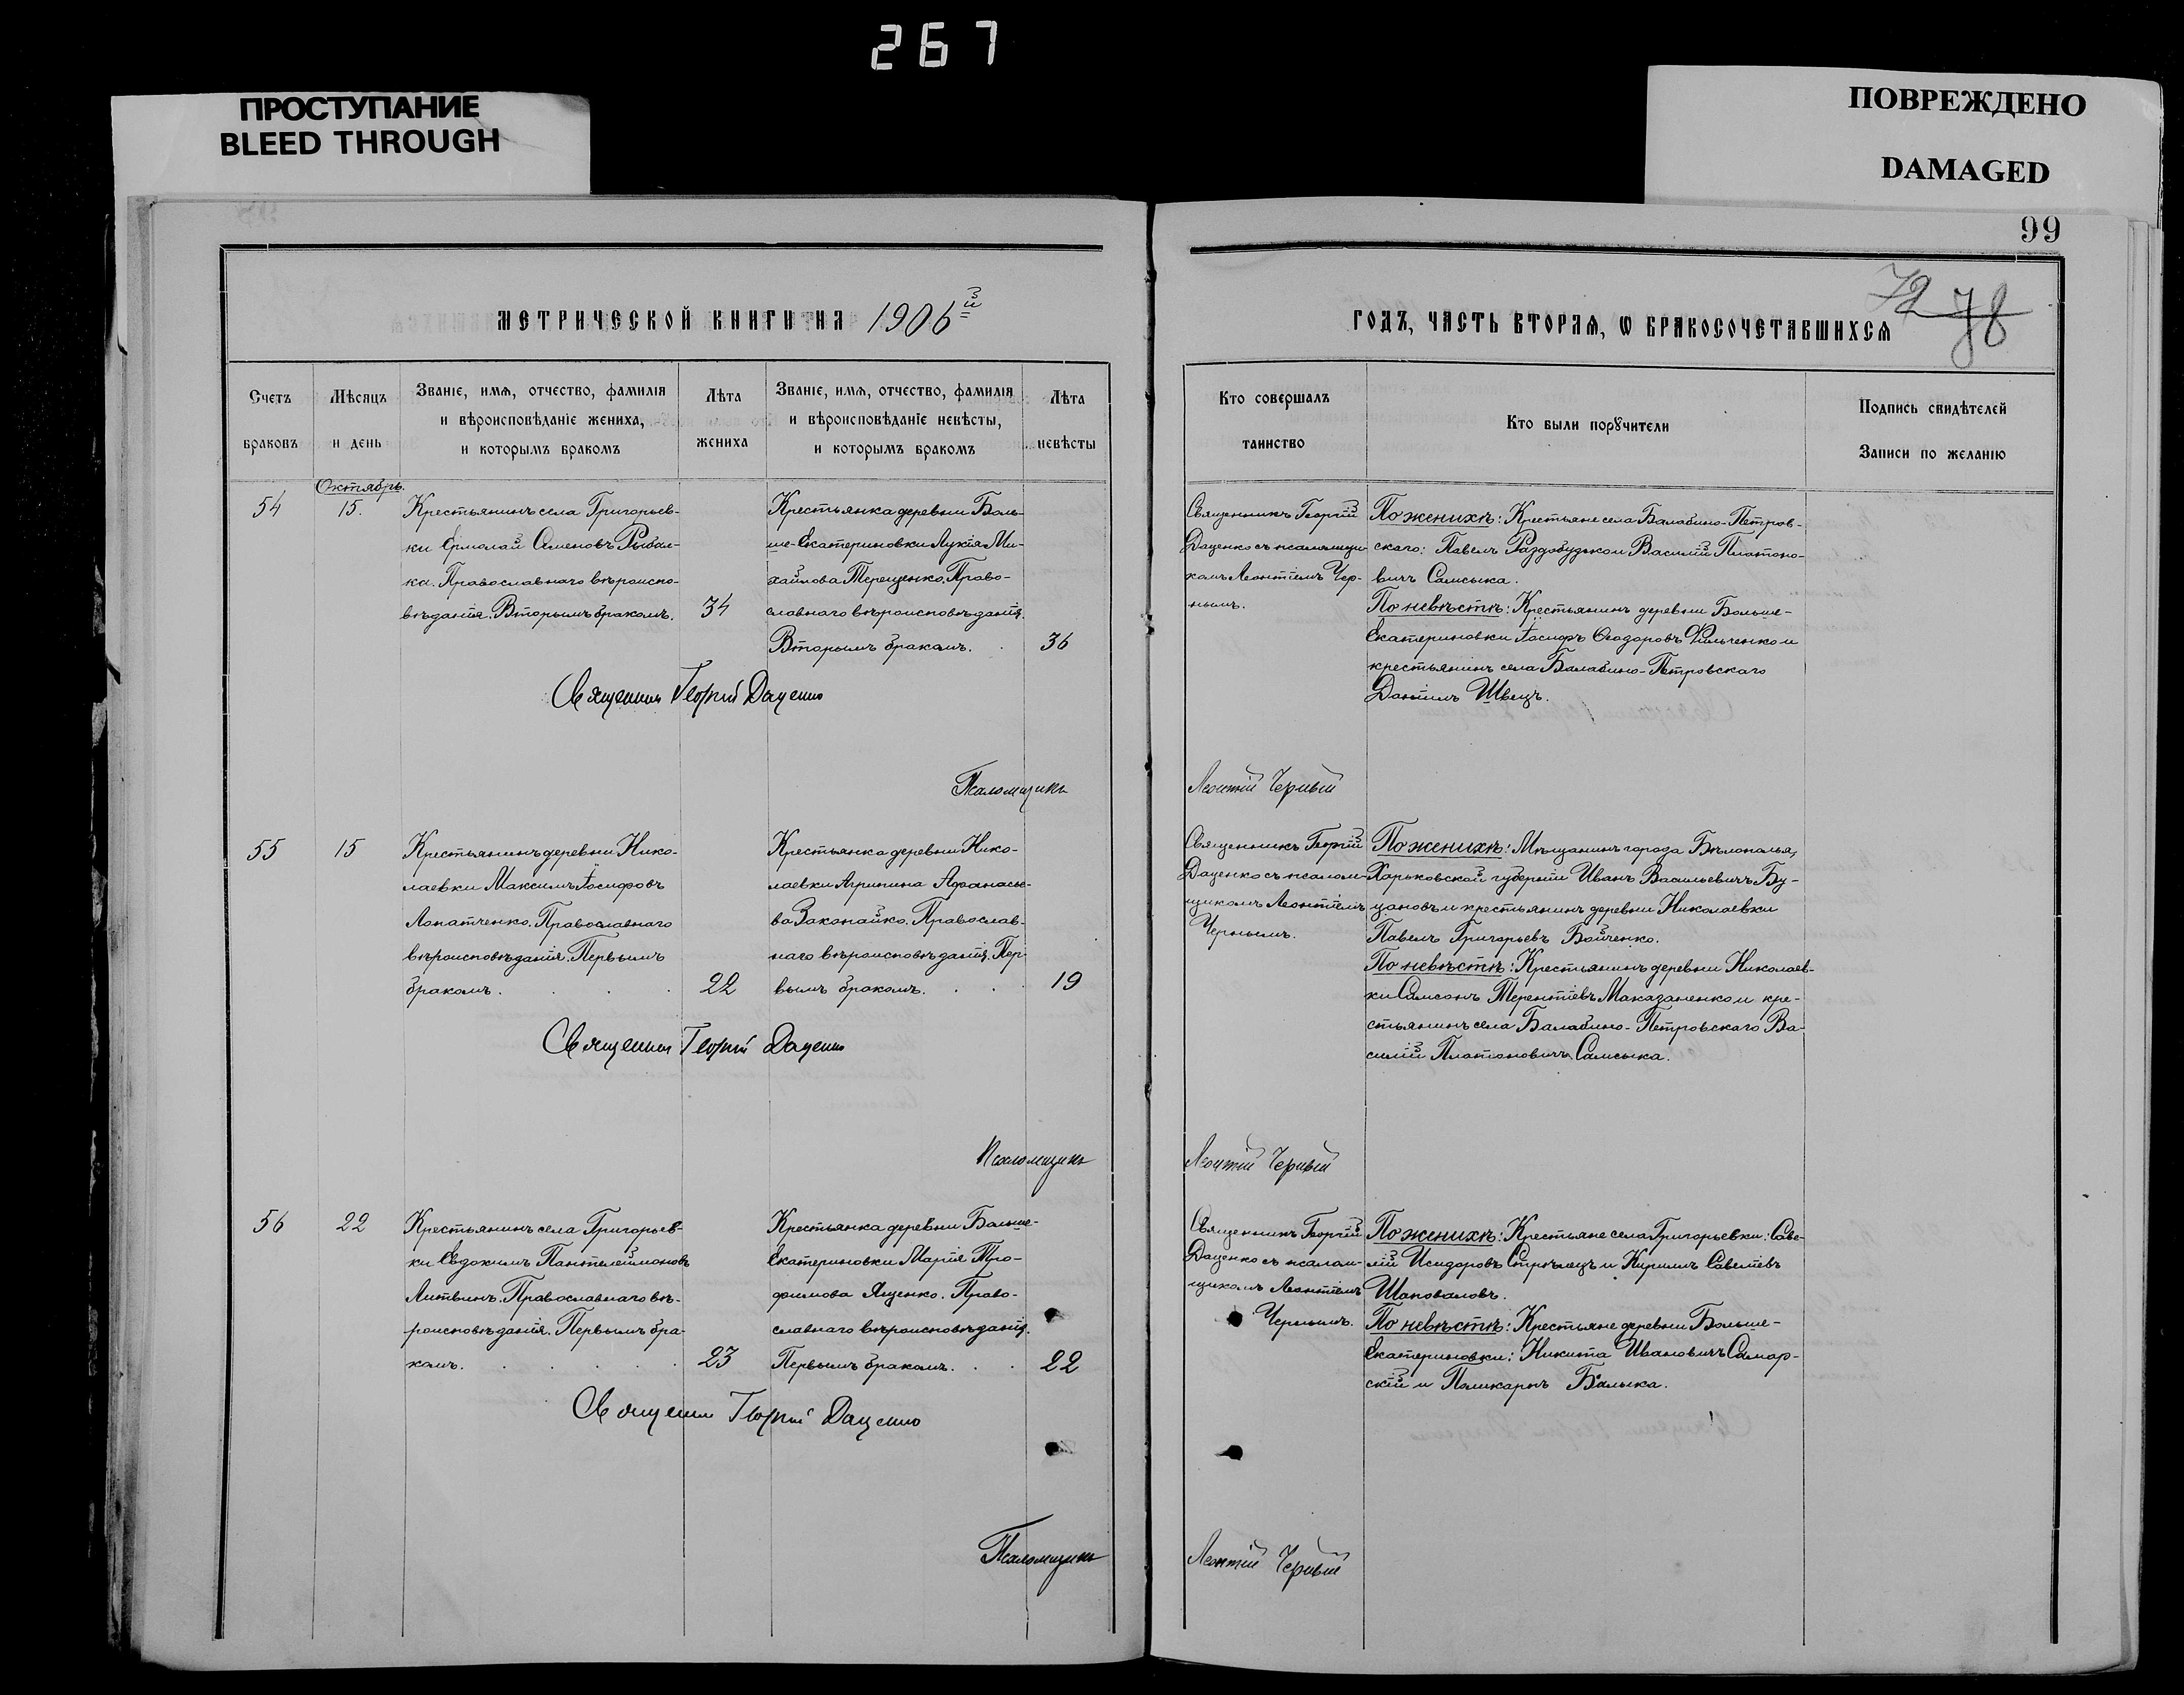 267
ПРОСТУПАНИЕ
BLEED THROUGH
ПОВРЕЖДЕНО
DAMAGED
99
72 78
МЕТРИЧЕСКОЙ КНИГИ НА 1906й
ГОДЪ, ЧАСТЬ ВТОРАЯ, Ѡ БРАКОСОЧЕТАВШИХСЯ
Счетъ браковъ
Мѣсяцъ и день
Званіе, имя, отчество, фамилія
и вѣроисповѣданіе жениха,
и которымъ бракомъ
Лѣта жениха
Званіе, имя, отчество, фамилія
и вѣроисповѣданіе невѣсты,
и которымъ бракомъ
Лѣта невѣсты
Кто совершалъ
таинство
Кто были порꙋчители
Подпись свидѣтелей
Записи по желанію
54
Октябрь.
15.
Крестьянинъ села Григорьев-
ки Ермолай Семеновъ Рыбал-
ка. Православнаго вѣроиспо-
вѣданія. Вторымъ бракомъ.
34
Крестьянка деревни Боль-
ше-Екатериновки Лукія Ми-
хайлова Терещенко. Право-
славнаго вѣроисповѣданія.
Вторымъ бракомъ.
36
Священникъ Георгій
Даценко съ псаломщи-
комъ Леонтіемъ Чер-
нымъ.
По женихѣ: Крестьяне села Балабино-Петров-
скаго: Павелъ Раздобудько и Василій Платоно-
вичъ Самсыка.
По невѣстѣ: Крестьянинъ деревни Больше-
Екатериновки Іосифъ Ѳеодоровъ Фильченко и
крестьянинъ села Балабино-Петровскаго
Даніилъ Швецъ.
Священникъ Георгій Даценко
Псаломщикъ Леонтій Черный
55
15
Крестьянинъ деревни Нико-
лаевки Максимъ Іосифовъ
Лопатченко. Православнаго
вѣроисповѣданія. Первымъ
бракомъ.
22
Крестьянка деревни Нико-
лаевки Агрипина Афанасье-
ва Закопайко. Православ-
наго вѣроисповѣданія. Пер-
вымъ бракомъ.
19
Священникъ Георгій
Даценко съ псалом-
щикомъ Леонтіемъ
Чернымъ.
По женихѣ: Мѣщанинъ города Бѣлополья,
Харьковской губерніи Иванъ Васильевичъ Бу-
цановъ и крестьянинъ деревни Николаевки
Павелъ Григорьевъ Бойченко.
По невѣстѣ: Крестьянинъ деревни Николаев-
ки Самсонъ Терентіевъ Маказаненко и кре-
стьянинъ села Балабино-Петровскаго Ва-
силій Платоновичъ Самсыка.
Священникъ Георгій Даценко
Псаломщикъ Леонтій Черный
56
22
Крестьянинъ села Григорьев-
ки Евдокимъ Пантелеимоновъ
Литвинъ. Православнаго вѣ-
роисповѣданія. Первымъ бра-
комъ.
23
Крестьянка деревни Больше-
Екатериновки Марія Тро-
фимова Ященко. Право-
славнаго вѣроисповѣданія.
Первымъ бракомъ.
22
Священникъ Георгій
Даценко съ псалом-
щикомъ Леонтіемъ
Чернымъ.
По женихѣ: Крестьяне села Григорьевки: Саве-
лій Исидоровъ Стрѣлецъ и Кирилъ Савеліевъ
Шаповаловъ.
По невѣстѣ: Крестьяне деревни Больше-
Екатериновки: Никита Ивановичъ Самар-
скій и Поликарпъ Балыка.
Священникъ Георгій Даценко
Псаломщикъ Леонтій Черный